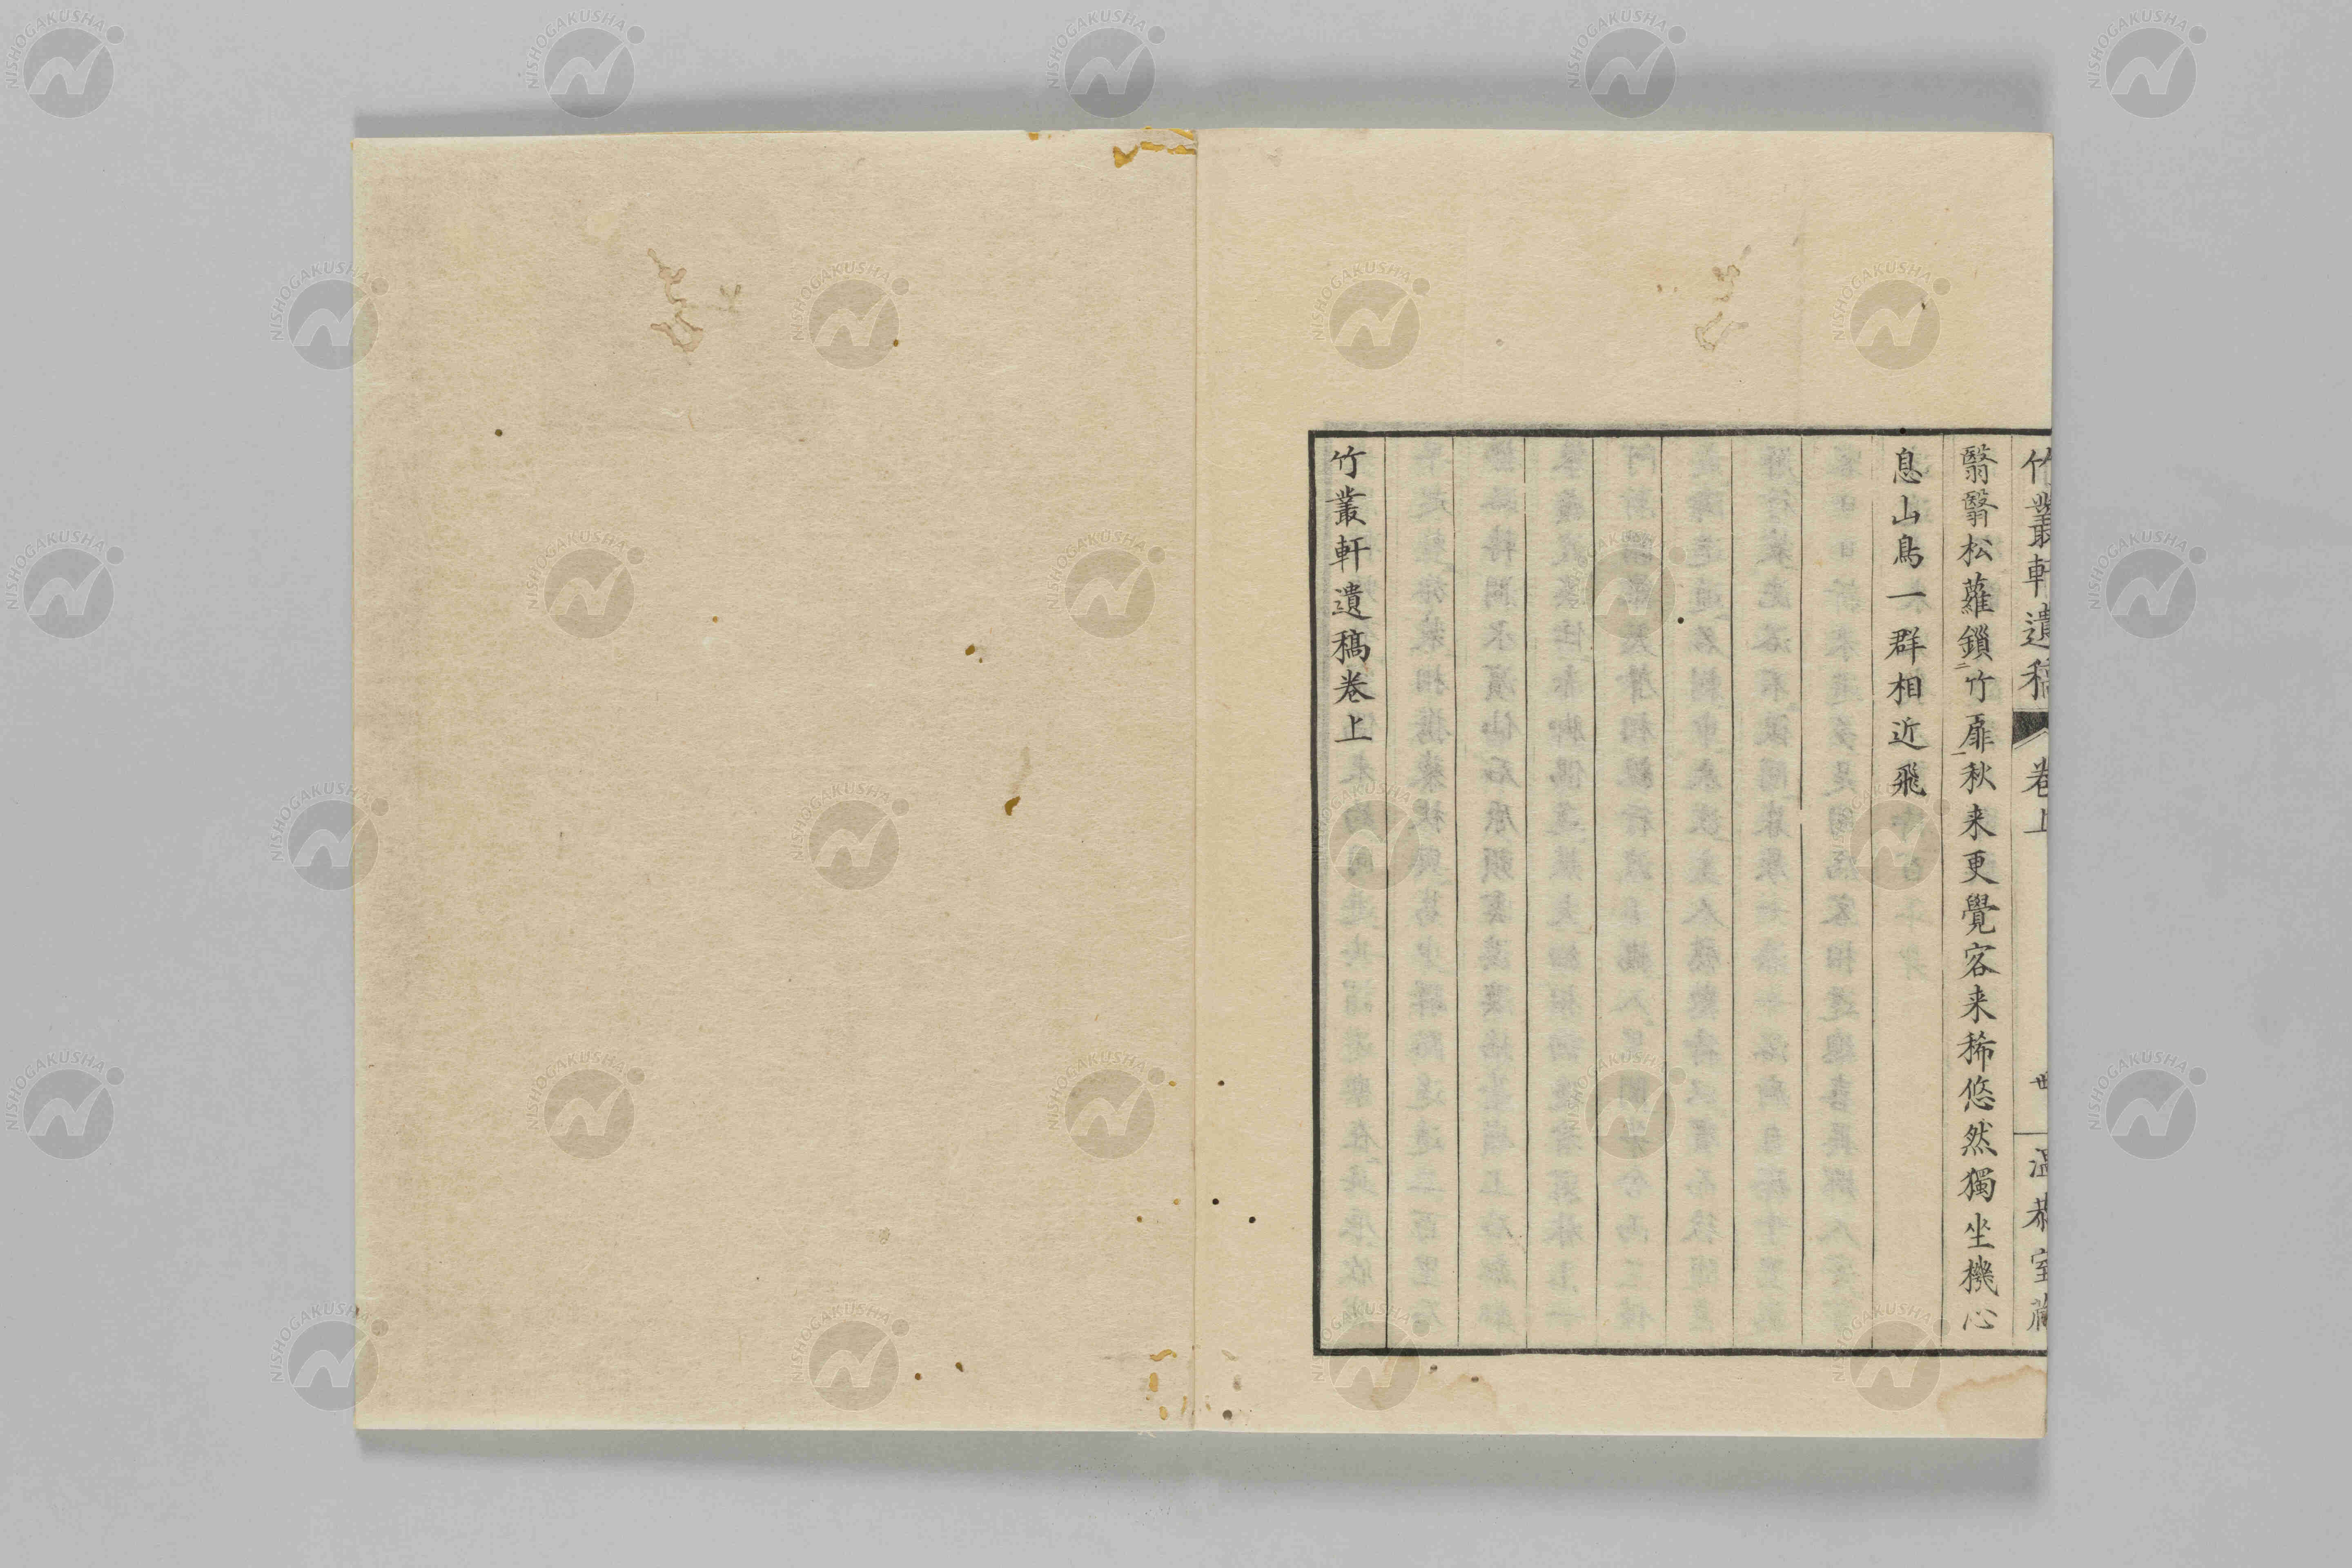 竹叢軒遺稿 卷上 世 溫恭室藏
翳翳松蘿鎖二竹扉一秋来更覺客来稀悠然獨坐機心
息山鳥一群相近飛
竹叢軒遺稿卷上
NISHOGAKUSHA